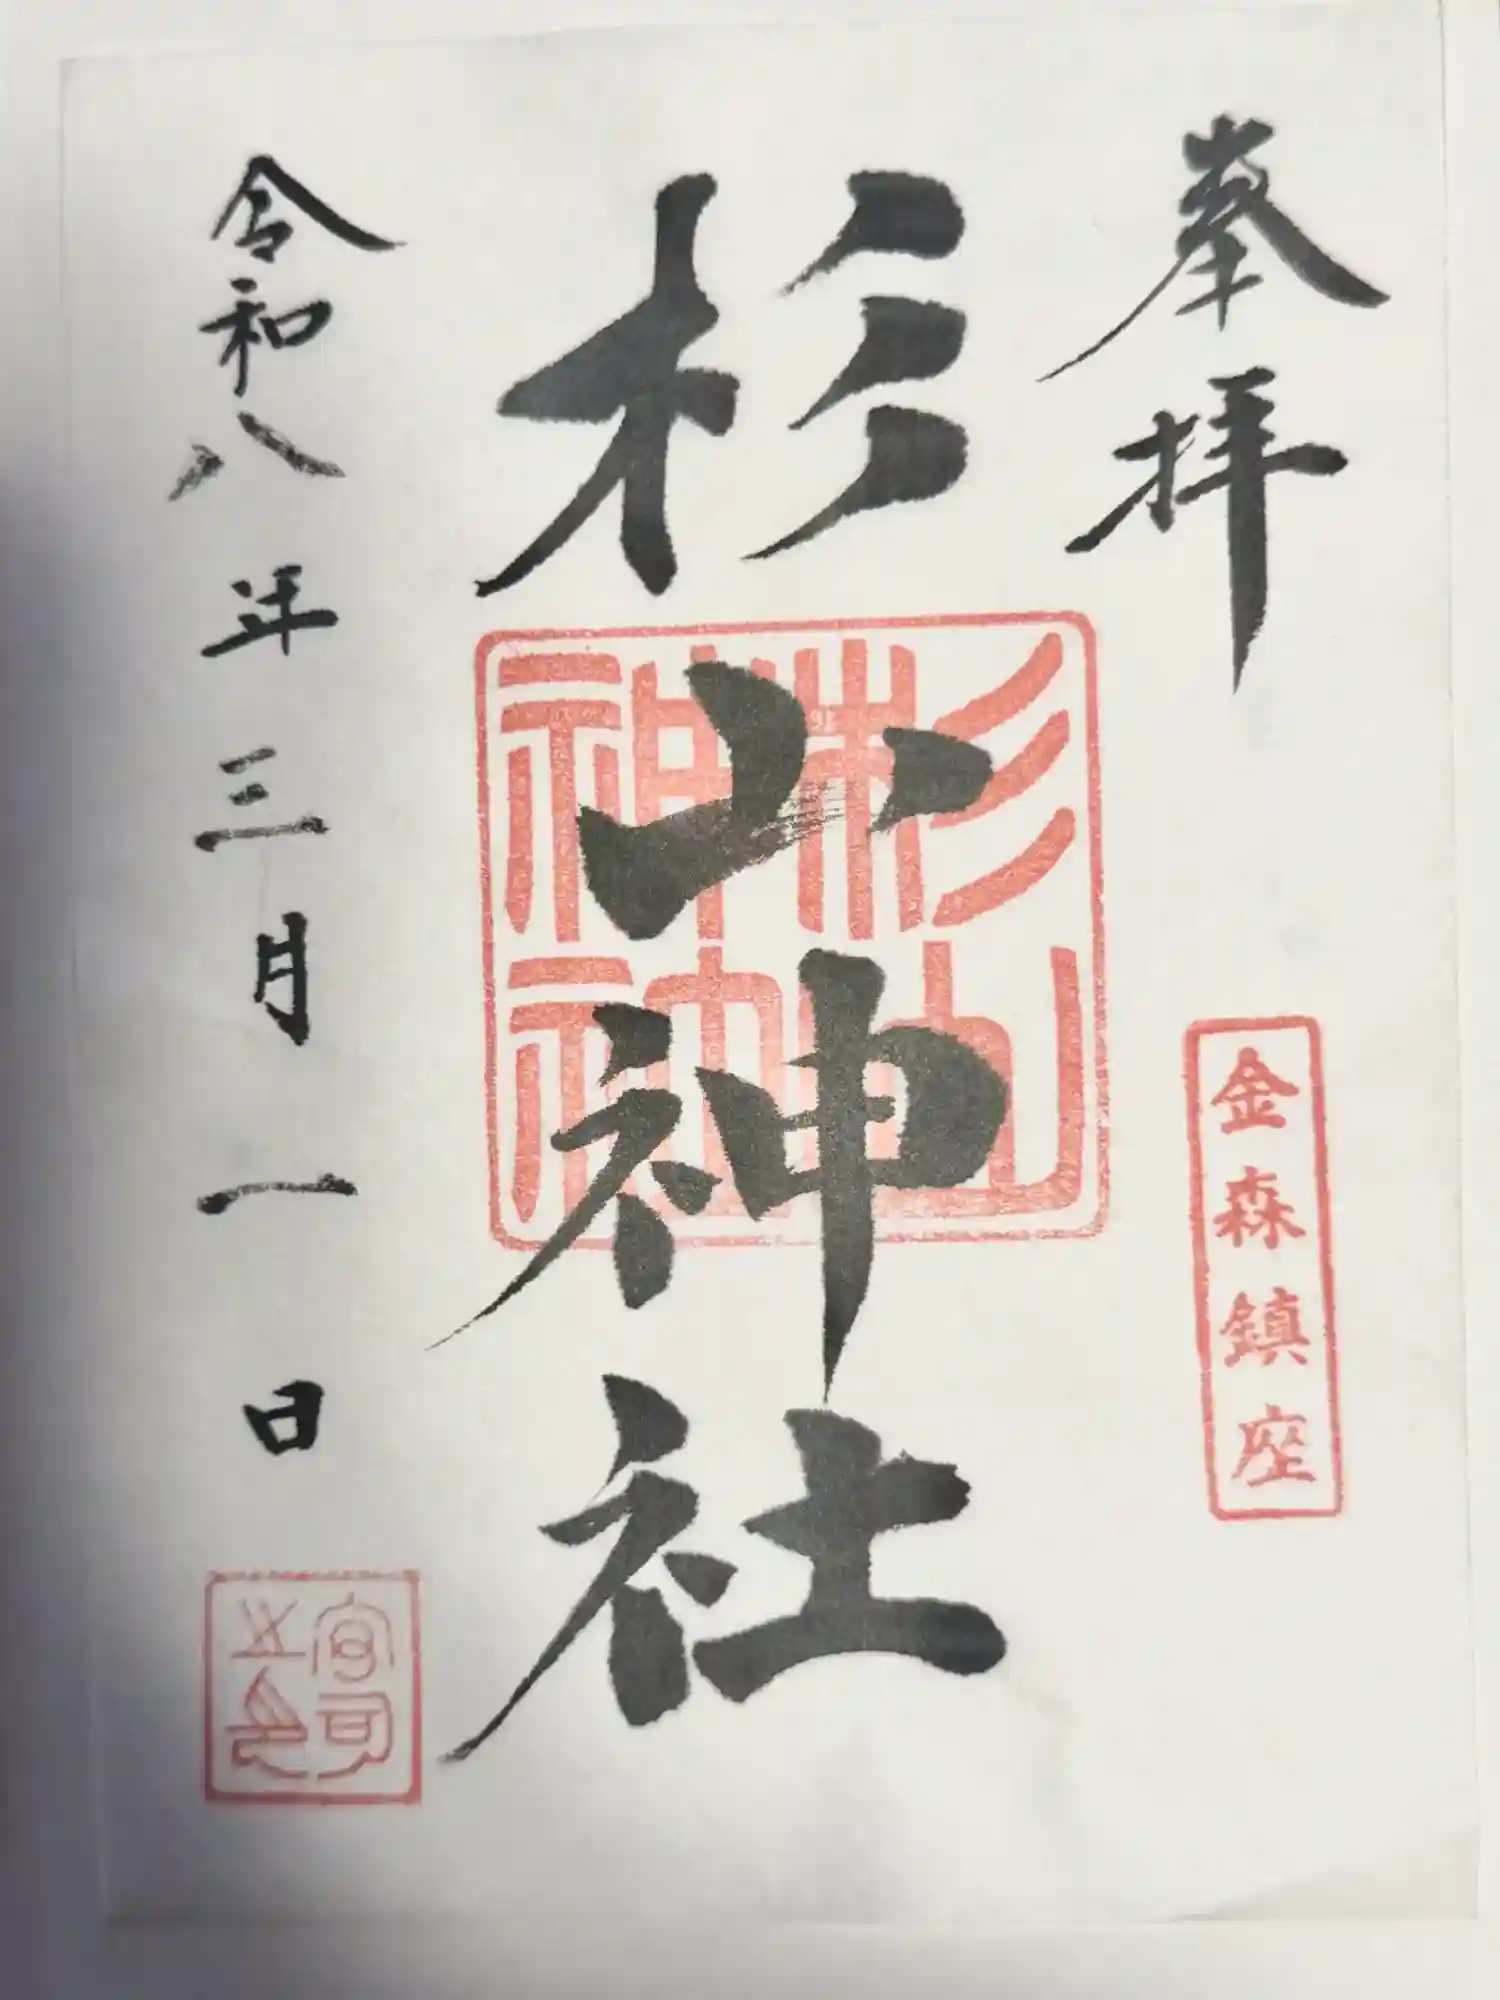 奉拝
金森鎮座
杉山神社
杉山
神社
令和八年三月一日
宮司
之印